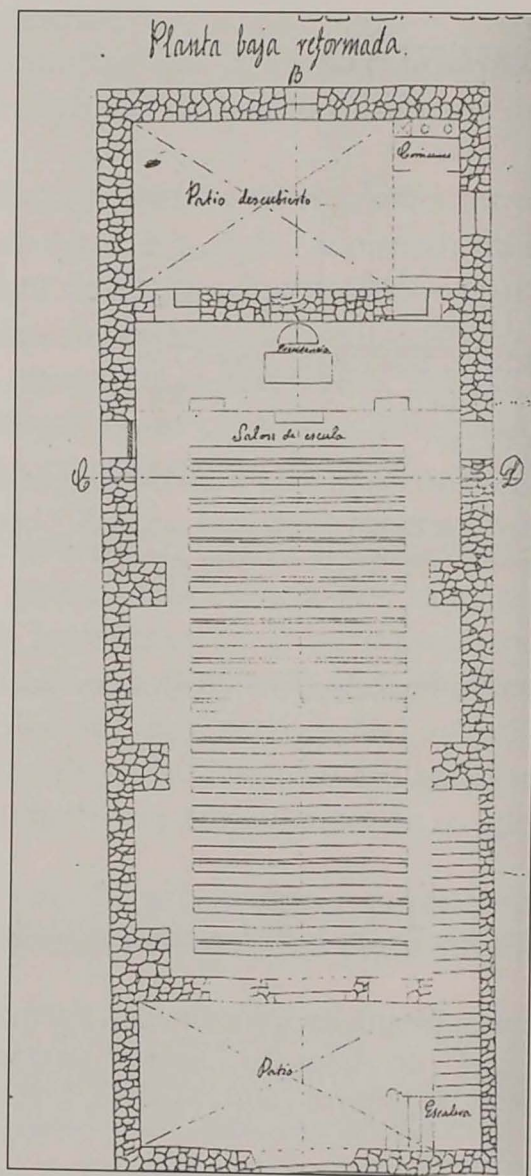 Planta baja reformada.
B
Comunes
Patio descubierto
Presidencia
Salon de escula
C
D
Patio
Escalera